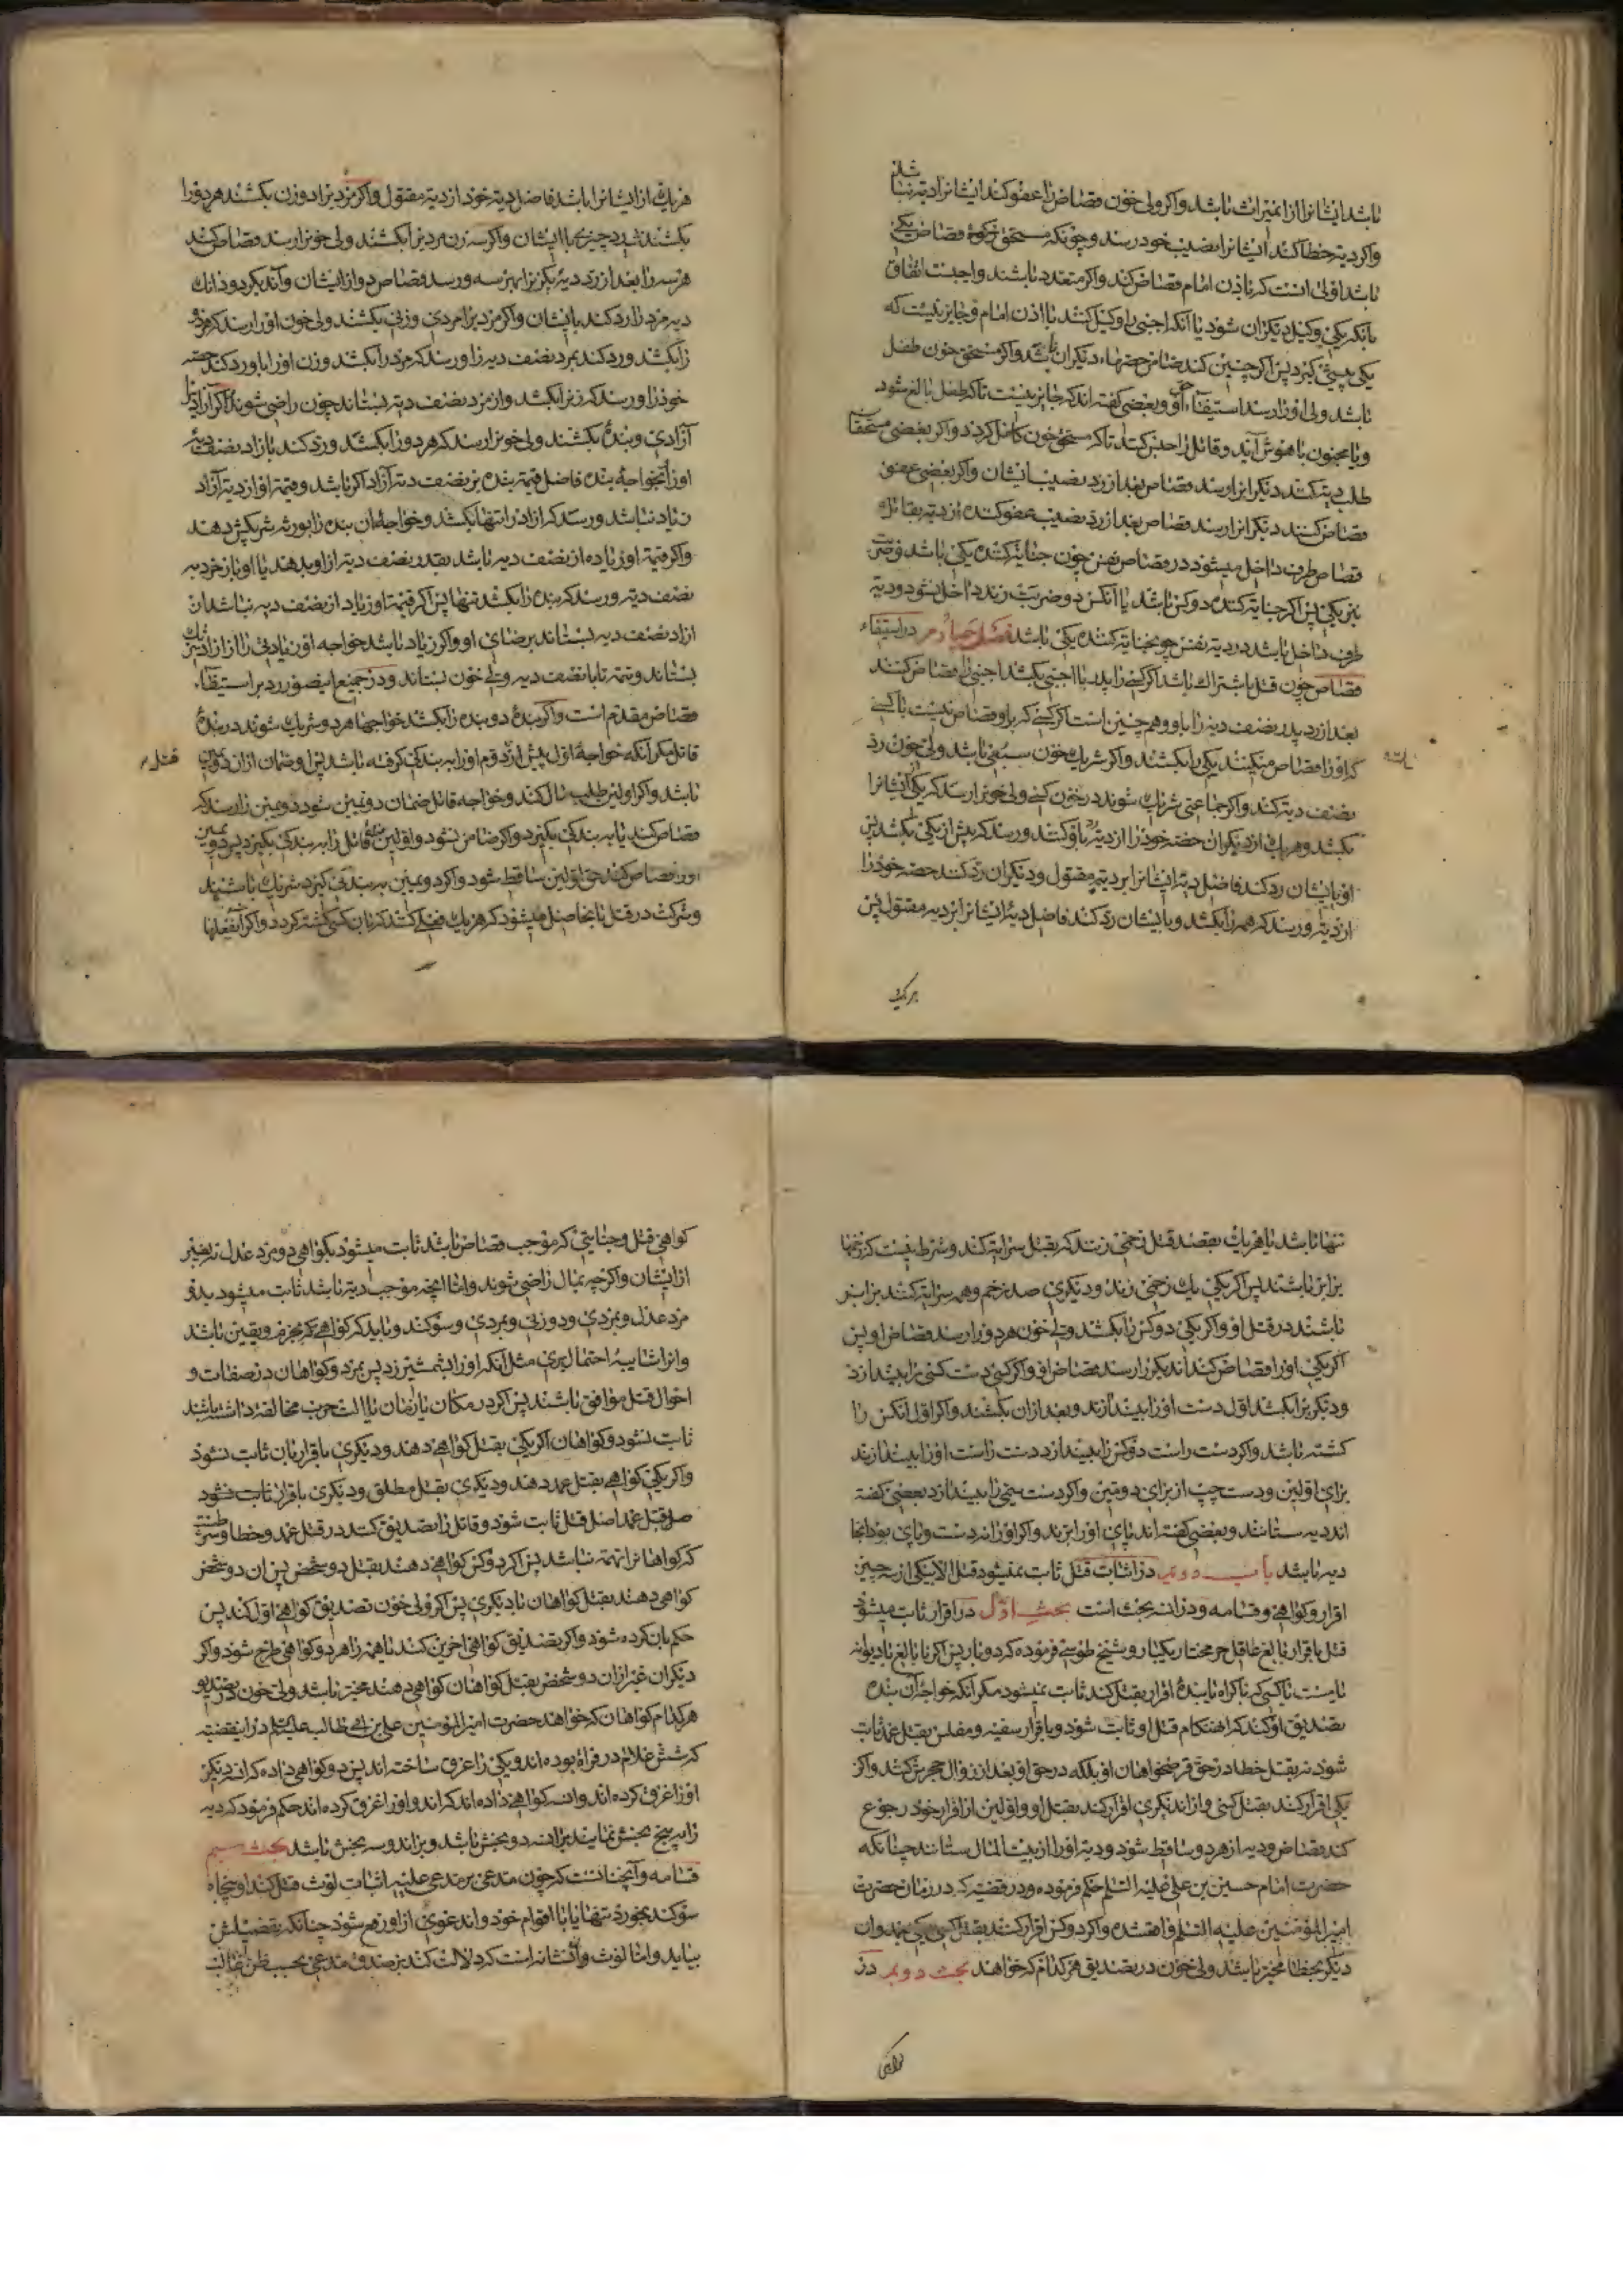 باشد ایشانرا از میراث باشد و اکر ولی خون قصاص را عفو کند ایشانرا دیه نباشد
و اکر دیه خطا کند ایشانرا نصیب خود رسد و چونکه مستحق قصاص یکی
باشد اولی انست که باذن امام قصاص کند و اکر متعدد باشند واجبست اتفاق
بانکه یکی وکیل دیکران شود یا آنکه اجنبی را وکیل کنند با اذن امام و جایز نیست که
یکی پیشی کیرد پس اکر چنین کند ضامن حصهاء دیکران باشد و اکر مستحق خون طفل
باشد ولی او را رسد استیفاء حق او و بعضی کفته اند که جایز نیست تا که طفل بالغ شود
و یا مجنون با هوش آید و قاتل را حبس کند تا که مستحق خون کامل کردد و اکر بعضی مستحقان
طلب دیه کنند دیکرانرا رسد قصاص بعد از رد نصیب ایشان و اکر بعضی عفو
قصاص کنند دیکرانرا رسد قصاص بعد از رد نصیب عفو کننده از دیه بقاتل
قصاص طرف داخل میشود در قصاص نفس چون جنایة کننده یکی باشد و ضربت
نیز یکی پس اکر جنایة کننده دو کس باشد یا آنکس دو ضربت زند داخل نشود و دیه
طرف داخل باشد در دیه نفس چو جنایة کننده یکی باشد فصل چهارم در استیفاء
قصاص چون قتل باشتراک باشد اکر کسی را پدر با اجنبی بکشد اجنبی را قصاص کنند
بعد از رد پدر نصف دیه را باو و هم چنین است اکر کسی که براو قصاص نیست با کسی
که او را قصاص میکنند یکی را بکشند و اکر شریک خون سبعی باشد ولی خون رد
نصف دیه کند و اکر جماعتی شریک شوند در خون کسی ولی خونرا رسد که یکی ایشانرا
بکشد و هر یک از دیکران حصه خود را از دیه رد باو کنند و رسد که بیش از یکی بکشد پس
او بایشان رد کند فاضل دیه ایشانرا بر دیه مقتول و دیکران رد کنند حصه خود را
از دیه و رسد که همه را بکشد و بایشان رد کند فاضل دیه ایشانرا بر دیه مقتول پس
هر یک
هر یک از ایشانرا باشد فاضل دیه خود از دیه مقتول و اکر مردیرا دو زن بکشند هر دو را
بکشند نه رد چیزی با ایشان و اکر سه زن مردیرا بکشند ولی خونرا رسد قصاص کند
هر سه را بعد از رد دیه یکزن با هر سه و رسد قصاص دو از ایشان و آندیکر دو دانک
دیه مرد را رد کند بایشان و اکر مردیرا مردی و زنی بکشند ولی خون او را رسد که هر دو
را بکشد و رد کند بمرد نصف دیه را و رسد که مرد را بکشد و زن او را باو رد کند حصه
خود را و رسد که زنرا بکشد و از مرد نصف دیه بستاند چون راضی شوند و اکر آزادیرا
آزادی و بندهٔ بکشند ولی خونرا رسد که هر دو را بکشد و رد کند بازاد نصف دیهٔ
او را و بخواجهٔ بنده فاضل قیمة بنده بر نصف دیه آزاد اکر باشد و قیمة او از دیه آزاد
زیاد نباشد و رسد که ازاد را تنها بکشد و خواجهٔ ان بنده را بورثه شریکش دهند
و اکر قیمة او زیاده از نصف دیه باشد بقدر نصف دیه از او بدهند یا او باز خرد به
نصف دیه و رسد که بنده را بکشد تنها پس اکر قیمة او زیاد از نصف دیه نباشد ان
ازاد نصف دیه بستاند برضای او و اکر زیاد باشد خواجه او زیادتی را از ازاد شریک
بستاند و تتمه تا با نصف دیه ولی خون بستاند و در جمیع این صور رد بر استیفاء
قصاص مقدم است و اکر بندهٔ دو بنده را بکشد خواجها هر دو شریک شوند در بندهٔ
قاتل مکر آنکه خواجهٔ اول پیش از دوم او را به بندکی کرفته باشد پس او ضمان ازان دومین
باشد و اکر اولین طلب مال کند و خواجه قاتل ضمان دومین شود دومین را رسد که
قصاص کند یا به بندکی بکیرد و اکر ضامن نشود و اولین قاتل را به بندکی بکیرد پس دومین
او را قصاص کند حق اولین ساقط شود و اکر دومین به بندکی کیرد شریک باشند
و شرکت در قتل بانجا حاصل میشود که هر یک فعلی کنند که بان کسی کشته کردد و اکر انفعلها
قتل
تنها باشد یا هر یک بقصد قتل زخمی زنند که بقتل سرایة کند و شرط نیست که زخمها
برابر باشند پس اکر یکی یک زخمی زند و دیکری صد زخم و همه سرایة کنند برابر
باشند در قتل او و اکر یکی دو کس را بکشد ولی خون هر دو را رسد قصاص او پس
اکر یکی او را قصاص کند اندیکر را رسد قصاص او و اکر کسی دست کسی را بیندازد
و دیکریرا بکشد اول دست او را بیندازند و بعد ازان بکشند و اکر اول انکس را
کشته باشد و اکر دست راست دو کس را بیندازد دست راست او را بیندازند
برای اولین و دست چپ از برای دومین و اکر دست سیمی را بیندازد بعضی کفته
اند دیه ستانند و بعضی کفته اند پای او را برند و اکر او را نه دست و پای بود انجا
دیه باشد باب دوم در اثبات قتل ثابت نمیشود قتل الا بیکی از سه چیز
اقرار و کواهی و قسامه و دران سه بحث است بحث اول در اقرار ثابت میشود
قتل باقرار بالغ عاقل حر مختار یکبار و شیخ طوسی فرموده که دو بار پس اکر نابالغ یا دیوانه
یا مست یا کسی که باکراه یا بندهٔ اقرار بقتل کند ثابت نمیشود مکر آنکه خواجهٔ آن بنده
تصدیق او کند که اهنکام قتل او ثابت شود و باقرار سفیه و مفلس بقتل عمد ثابت
شود نه بقتل خطا در حق قرضخواهان او بلکه در حق او بعد از زوال حجرش کند و اکر
یکی اقرار کند بقتل کسی و از اندیکری اقرار کند بقتل او و اولین از اقرار خود رجوع
کند قصاص و دیه از هر دو ساقط شود و دیه او را از بیت المال ستانند چنانکه
حضرت امام حسین بن علی علیه السلام حکم فرموده و در قضیه که در زمان حضرت
امیر المؤمنین علیه السلم واقعشده و اکر دو کس اقرار کنند بقتل کسی یکی بعمد وان
دیکر بخطا مخیر باشد ولی خون در تصدیق هر کدام که خواهند بحث دویم در
کواهی
کواهی قتل و جنایتی که موجب قصاص باشد ثابت میشود بکواهی دو مرد عدل نه بغیر
از ایشان و اکر چه بمال راضی شوند و اما انچه موجب دیه باشد ثابت میشود بدو
مرد عدل و بمردی و دو زنی و بمردی و سوکند و باید که کواهی بجزم و یقین باشد
و از شایبهٔ احتمال بری مثل آنکه او را بشمشیر زد پس بمرد و کواهان در صفات و
احوال قتل موافق باشند پس اکر در مکان یا زمان یا الت حرب مخالفه داشته باشند
ثابت نشود و کواهان اکر یکی بقتل کواهی دهند و دیکری باقرار بان ثابت نشود
و اکر یکی کواهی بقتل عمد دهند و دیکری بقتل مطلق و دیکری باقرار ثابت نشود
اصل قتل ثابت شود و قاتل را تصدیق کنند در قتل عمد و خطا و شرط
که کواهانرا تهمة نباشد پس اکر دو کس کواهی دهند بقتل دو شخص پس ان دو شخص
کواهی دهند بقتل کواهان یا دیکری پس اکر ولی خون تصدیق کواهی اول کند پس
حکم بان کرده شود و اکر تصدیق کواهی اخرین کند یا همه را هر دو کواهی طرح شود و اکر
دیکران غیر ازان دو شخص بقتل کواهان کواهی دهند مخیر باشد ولی خون در تصدیق
هر کدام کواهان که خواهند حضرت امیر المؤمنین علی بن ابی طالب علیه السلام در این قضیه
که شش غلام در فراة بوده اند و یکی را غرق ساخته اند پس دو کواهی داده که انسه دیکر
او را غرق کرده اند وان سه کواهی داده اند که اندو او را غرق کرده اند حکم فرمود که دیه
را به پنج بخش نمایند بران سه دو بخش باشد و بر اندو سه بخش باشد بحث سیم
قسامه و آنچنانست که چون مدعی بر مدعی علیه اثبات لوث قتل کند او پنجاه
سوکند بخورد تنها یا با اقوام خود و اند عوی از او رهم شود چنانکه تفضیلش
بیاید و اما لوث وان نشانه است که دلالت کند بر صدق مدعی بحسب ظن غالب